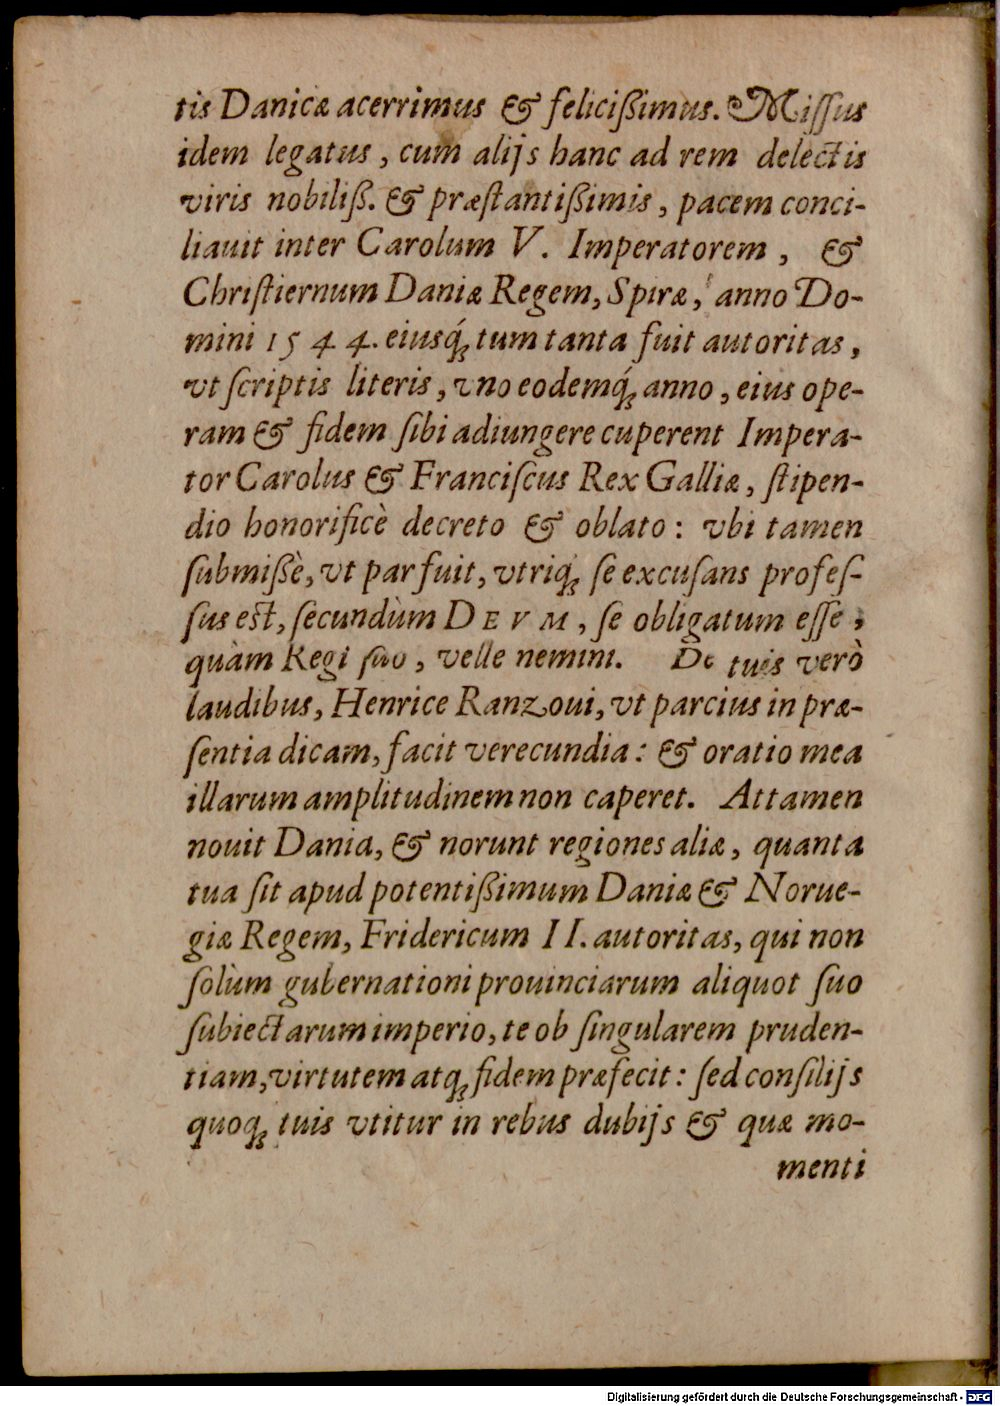 tis Danicæ acerrimus & felicißimus. Miſſus
idem legatus, cum alijs hanc ad rem delectis
viris nobiliß. & præſtantißimis, pacem conci-
liauit inter Carolum V. Imperatorem, &
Chriſtiernum Daniæ Regem, Spiræ, anno Do-
mini 1544. eiusq́; tum tanta fuit autoritas,
vt ſcriptis literis, vno eodemq́; anno, eius ope-
ram & fidem ſibi adiungere cuperent Impera-
tor Carolus & Franciſcus Rex Galliæ, ſtipen-
dio honorificè decreto & oblato: vbi tamen
ſubmißè, vt par fuit, vtriq; ſe excuſans profeſ-
ſus eſt, ſecundùm DEVM, ſe obligatum eſſe,
quàm Regi ſuo, velle nemini. De tuis verò
laudibus, Henrice Ranzoui, vt parcius in præ-
ſentia dicam, facit verecundia: & oratio mea
illarum amplitudinem non caperet. Attamen
nouit Dania, & norunt regiones aliæ, quanta
tua ſit apud potentißimum Daniæ & Norue-
giæ Regem, Fridericum II. autoritas, qui non
ſolùm gubernationi prouinciarum aliquot ſuo
ſubiectarum imperio, te ob ſingularem pruden-
tiam, virtutem atq; fidem præfecit: ſed conſilijs
quoq; tuis vtitur in rebus dubijs & quæ mo-
menti
Digitalisierung gefördert durch die Deutsche Forschungsgemeinschaft - DFG